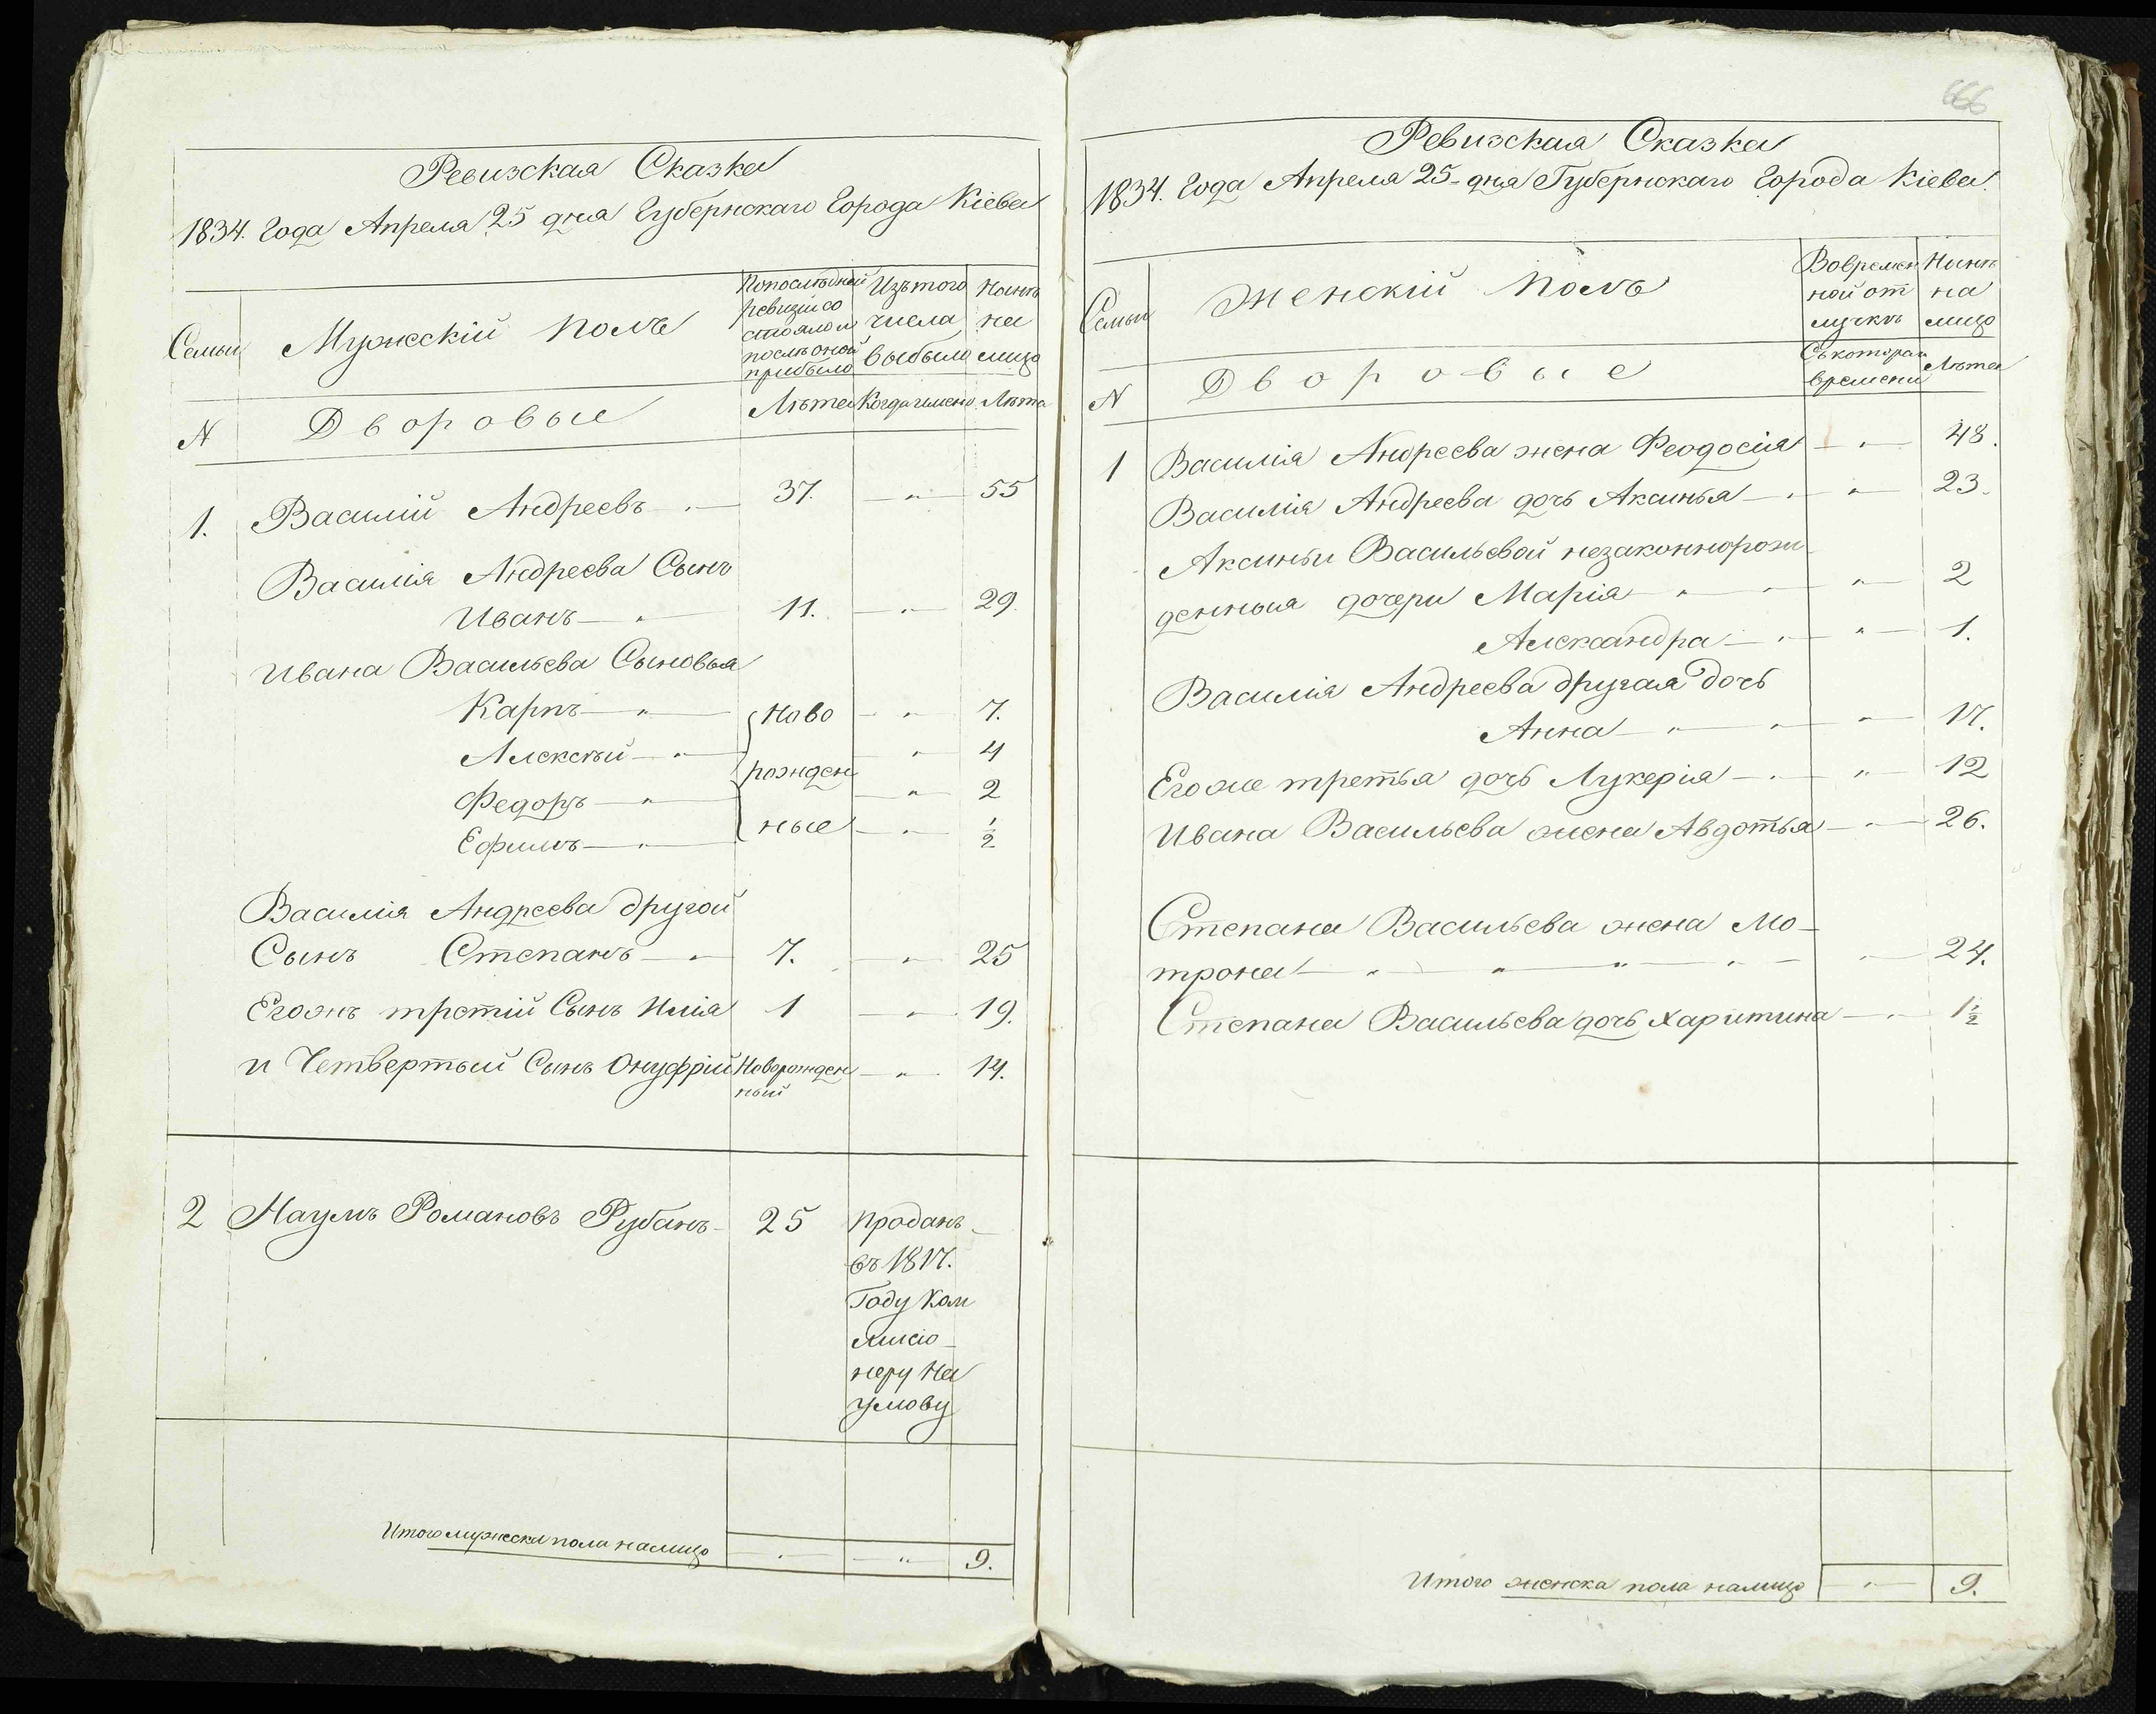 666
Ревизская Сказка
1834. Года Апреля 25 дня Губернскаго Города Кіева
Семьи
Мужескій полъ
По последней
ревизіи со
стояло и
после оной
прибыло
Изъ того
числа
выбыло
Ныне
на
лицо
N
Дворовые
Лета
Когда именно
Лета
1. Василій Андреевъ 37. 55
Василія Андреева Сынъ
Иванъ 11. 29.
Ивана Васильева Сыновья
Карпъ Ново 7.
Алексей 4
рожден
Федоръ 2
Ефимъ ные ½
Василія Андреева другой
Сынъ Степанъ 7. 25
Егожъ третій Сынъ Илія 1 19.
и Четвертый Сынъ Онуфрій Новорожден 14.
ный
2 Наумъ Романовъ Рубанъ 25 проданъ
въ 1817.
Году Ком
мисіо
неру На
умову
Итого мужеска пола налицо 9.
Ревизская Сказка
1834. Года Апреля 25-дня Губернскаго Города Кіева.
Семьи
Женскій полъ
Во времен
ной от
лучкъ
Ныне
на
лицо
N
Дворовые
Съ котораго
времени
Лета
1 Василія Андреева жена Феодосія 48.
Василія Андреева дочь Аксинья 23.
Аксиньи Васильевой незаконнорож
денныя дочери Марія 2
Александра 1.
Василія Андреева другая дочь
Анна 17.
Егоже третья дочь Лукерія 12
Ивана Васильева жена Авдотья 26.
Степана Васильева жена Мо-
трона 24.
Степана Васильева дочь Харитина 1½
Итого женска пола налицо 9.